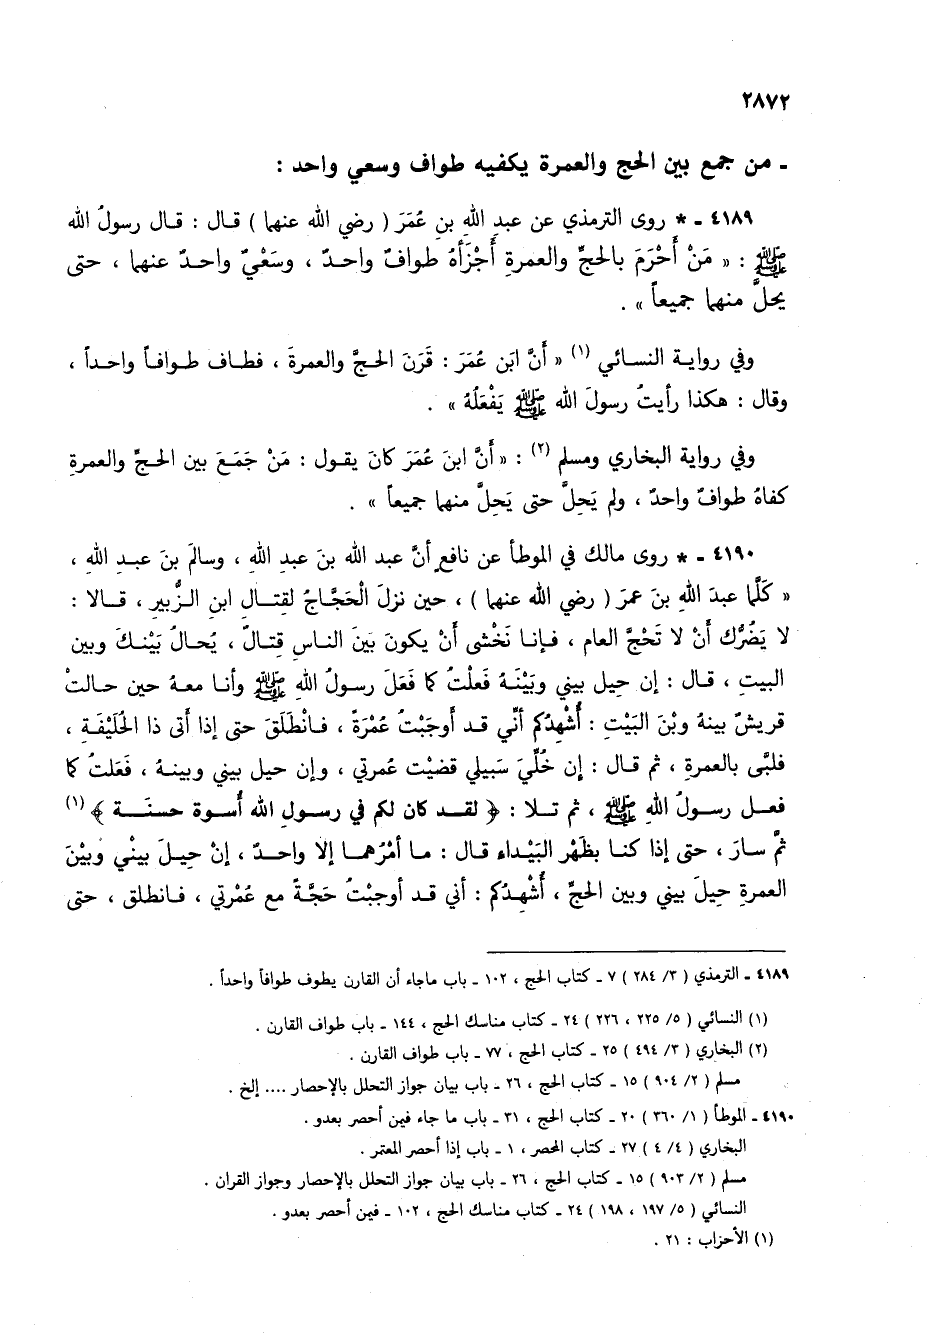 ٢٨٧٢
ـ من جمع بين الحج والعمرة يكفيه طواف وسعي واحد :
٤١٨٩ ـ * روى الترمذي عن عبد اللهِ بنِ عُمَرَ ( رضي الله عنهما ) قال : قال رسولُ الله
ﷺ : « مَنْ أَحْرَمَ بالحجِّ والعمرةِ أَجْزَأهُ طوافٌ واحدٌ ، وسَعْيٌ واحدٌ عنهما ، حتى
يحلَّ منهما جميعاً » .
وفي رواية النسائي (١) « أَنَّ ابن عُمَرَ : قَرَنَ الحجَّ والعمرةَ ، فطاف طوافاً واحداً ،
وقال : هكذا رأيتُ رسولَ الله ﷺ يَفْعَلُهُ » .
وفي رواية البخاري ومسلم (٢) : « أَنَّ ابنَ عُمَرَ كانَ يقول : مَنْ جَمَعَ بين الحجِّ والعمرةِ
كفاهُ طوافٌ واحدٌ ، ولم يَحِلَّ حتى يَحِلَّ منهما جميعاً » .
٤١٩٠ ـ * روى مالك في الموطأ عن نافعٍ أنَّ عبد الله بنَ عبدِ اللهِ ، وسالمَ بنَ عبدِ الله ،
« كَلَّما عبدَ اللهِ بنَ عمرَ ( رضي الله عنهما ) ، حين نزلَ الْحَجَّاجُ لقتالِ ابنِ الزُّبيرِ ، قالا :
لا يَضُرُّك أَنْ لا تَحْجَّ العام ، فإنا نَخْشى أَنْ يكونَ بينَ الناسِ قتالٌ ، يُحالُ بَيْنكَ وبين
البيتِ ، قال : إن حيل بيني وبَيْنَهُ فَعلْتُ كما فَعَلَ رسولُ اللهِ ﷺ وأنا معهُ حين حالتْ
قريشٌ بينهُ وبْنَ البَيْتِ : أُشْهِدُكم أنِّي قد أَوجَبْتُ عُمْرَةً ، فانْطَلَقَ حتى إذا أتى ذا الحُلَيْفَةِ ،
فلبَّى بالعمرةِ ، ثم قال : إن خُلِّيَ سَبيلي قضيْت عُمرتي ، وإن حيل بيني وبينهُ ، فَعَلتُ كما
فعل رسولُ اللهِ ﷺ ، ثم تلا : ﴿ لقد كان لكم في رسولِ الله أسوة حسنَة ﴾ (١)
ثمَّ سارَ ، حتى إذا كنا بظَهْر البَيْداء قال : ما أمْرُهما إلا واحدٌ ، إنْ حِيلَ بينْي وبَيْنَ
العمرةِ حِيلَ بيني وبين الحجِّ ، أُشْهِدُكم : أني قد أوجبْتُ حَجَّةً مع عُمْرتي ، فانطلق ، حتى
٤١٨٩ ـ الترمذي ( ٣/ ٢٨٤ ) ٧ ـ كتاب الحج ، ١٠٢ ـ باب ماجاء أن القارن يطوف طوافاً واحداً .
(١) النسائي ( ٥/ ٢٢٥ ، ٢٢٦ ) ٢٤ ـ كتاب مناسك الحج ، ١٤٤ ـ باب طواف القارن .
(٢) البخاري ( ٣/ ٤٩٤ ) ٢٥ ـ كتاب الحج ، ٧٧ ـ باب طواف القارن .
مسلم ( ٢/ ٩٠٤ ) ١٥ ـ كتاب الحج ، ٢٦ ـ باب بيان جواز التحلل بالإحصار .... إلخ .
٤١٩٠ ـ الموطأ ( ١/ ٣٦٠ ) ٢٠ ـ كتاب الحج ، ٣١ ـ باب ما جاء فيمن أحصر بعدو .
البخاري ( ٤/ ٤ ) ٢٧ ـ كتاب المحصر ، ١ ـ باب إذا أحصر المعتمر .
مسلم ( ٢/ ٩٠٣ ) ١٥ ـ كتاب الحج ، ٢٦ ـ باب بيان جواز التحلل بالإحصار وجواز القران .
النسائي ( ٥/ ١٩٧ ، ١٩٨ ) ٢٤ ـ كتاب مناسك الحج ، ١٠٢ ـ فيمن أحصر بعدو .
(١) الأحزاب : ٢١ .